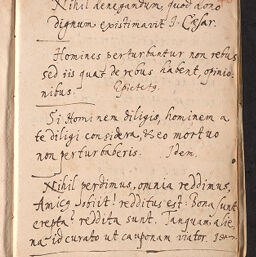 Nihil denegandum, quod dono
dignum existimavit J. Cæsar.
Homines perturbantur non rebus
sed iis quas de rebus habent, opinio-
nibus. Epictetꝰ.
Si Hominem diligis, hominem a
te diligi considera, & eo mortuo
non perturbaberis. Idem.
Nihil perdimus, omnia reddimus,
Amicꝰ obiit? redditus est. Bona sunt
erepta? reddita sunt. Tanquam alie-
na id curato ut cauponam viator. Idem